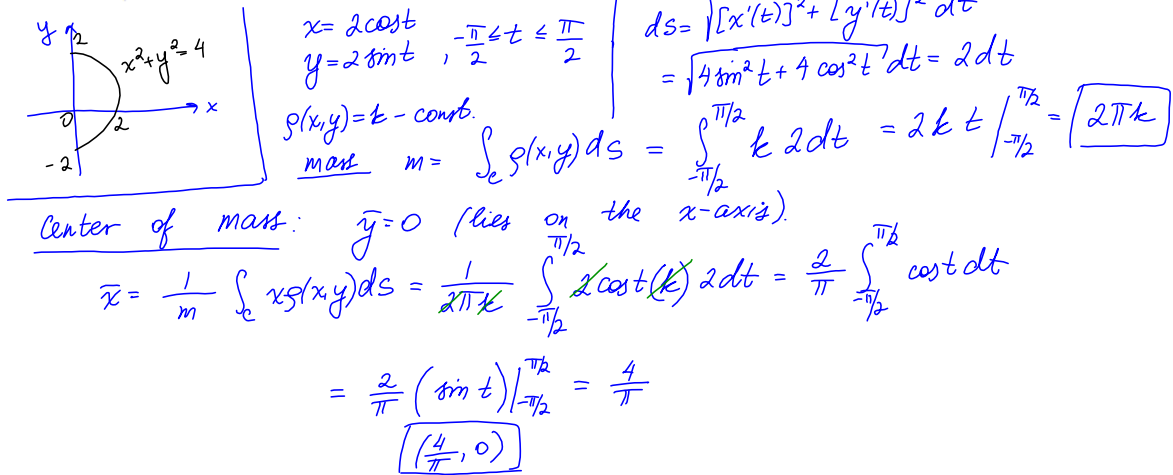 y 2 x²+y²=4 0 2 x -2
x = 2cost
y = 2 sint , -π/2 ≤ t ≤ π/2
ρ(x,y) = k - const.
ds = √([x'(t)]² + [y'(t)]²) dt
= √(4 sin²t + 4 cos²t) dt = 2dt
mass m = ∫_C ρ(x,y) ds = ∫_{-π/2}^{π/2} k 2dt = 2k t |_{-π/2}^{π/2} = 2πk
Center of mass: ȳ = 0 (lies on the x-axis).
x̄ = 1/m ∫_C xρ(x,y)ds = 1/(2πk) ∫_{-π/2}^{π/2} 2cost(k) 2dt = 2/π ∫_{-π/2}^{π/2} cost dt
= 2/π (sin t)|_{-π/2}^{π/2} = 4/π
(4/π, 0)